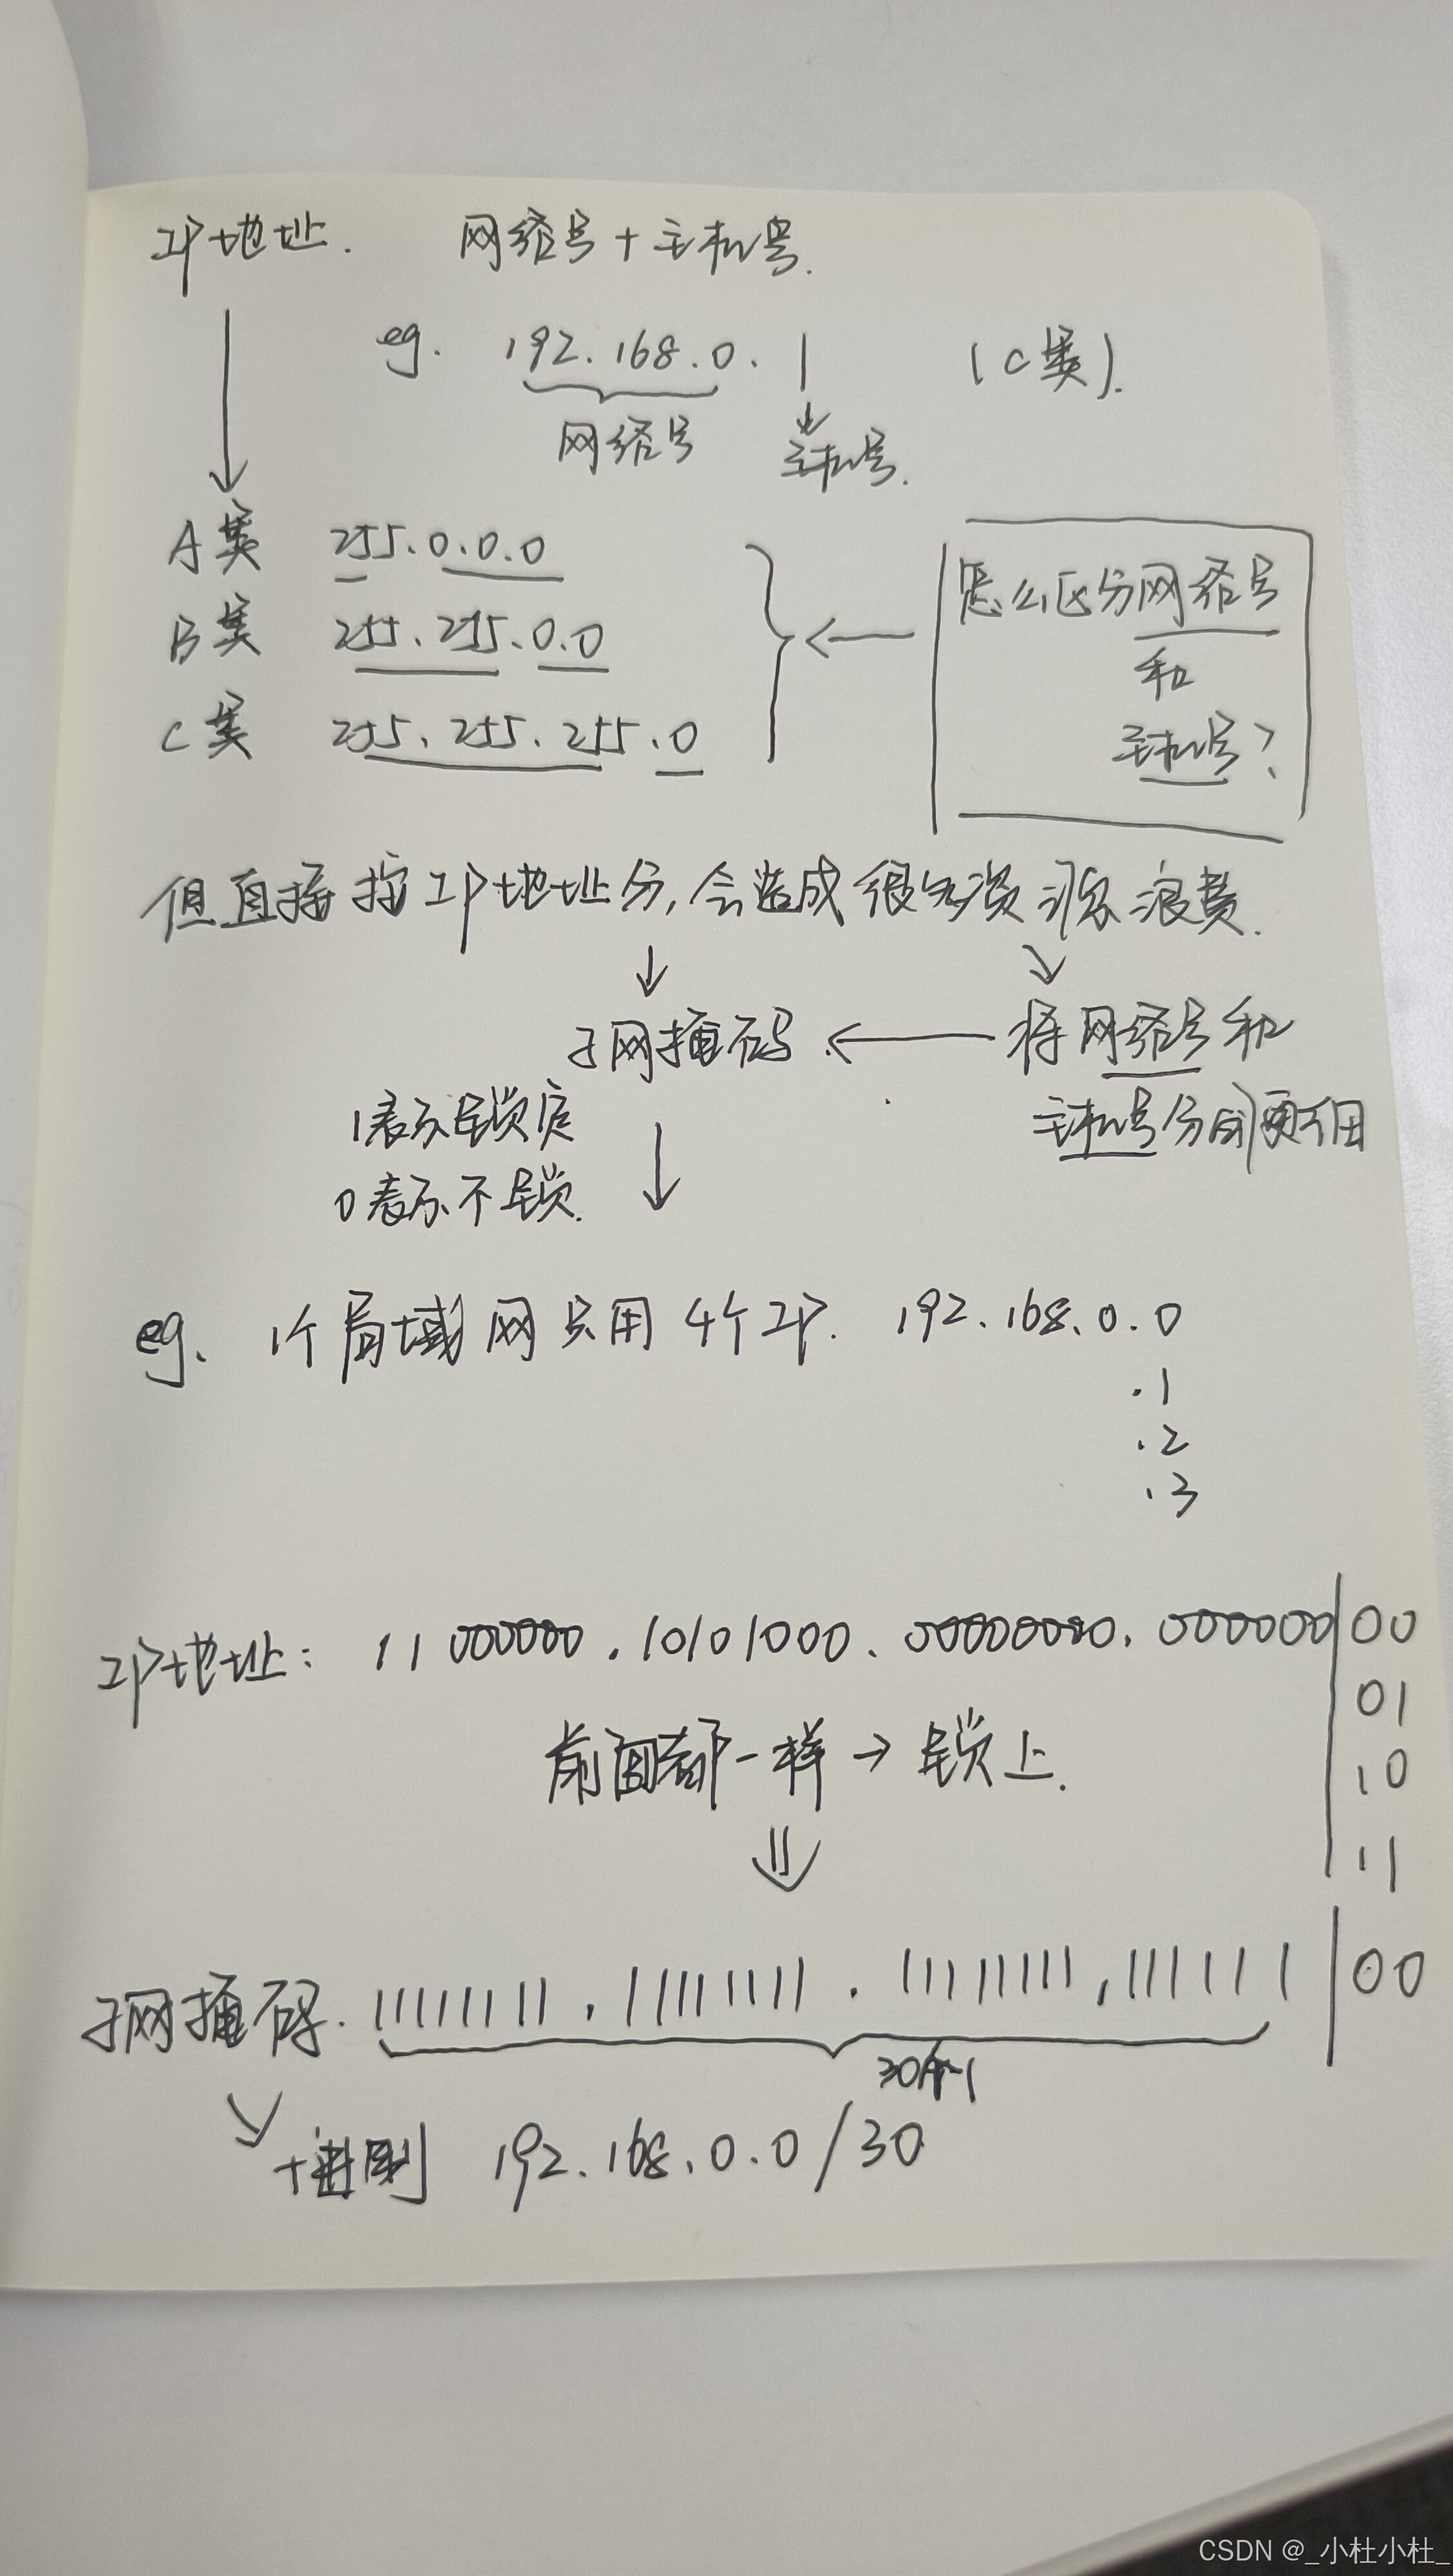 IP地址. 网络号+主机号.
eg. 192.168.0.1 (C类).
网络号 主机号.
A类 255.0.0.0
B类 255.255.0.0
C类 255.255.255.0
怎么区分网络号
和
主机号?
但直接按IP地址分,会造成很多资源浪费.
子网掩码. ← 将网络号和
主机号分的更细
1表示锁定
0表示不锁.
eg. 1个局域网只用4个IP. 192.168.0.0
.1
.2
.3
IP地址: 11000000.10101000.00000000.000000|00
01
10
11
前面都一样→锁上.
子网掩码. 11111111.11111111.11111111.111111|00
30个1
192.168.0.0/30
CSDN @_小杜小杜_